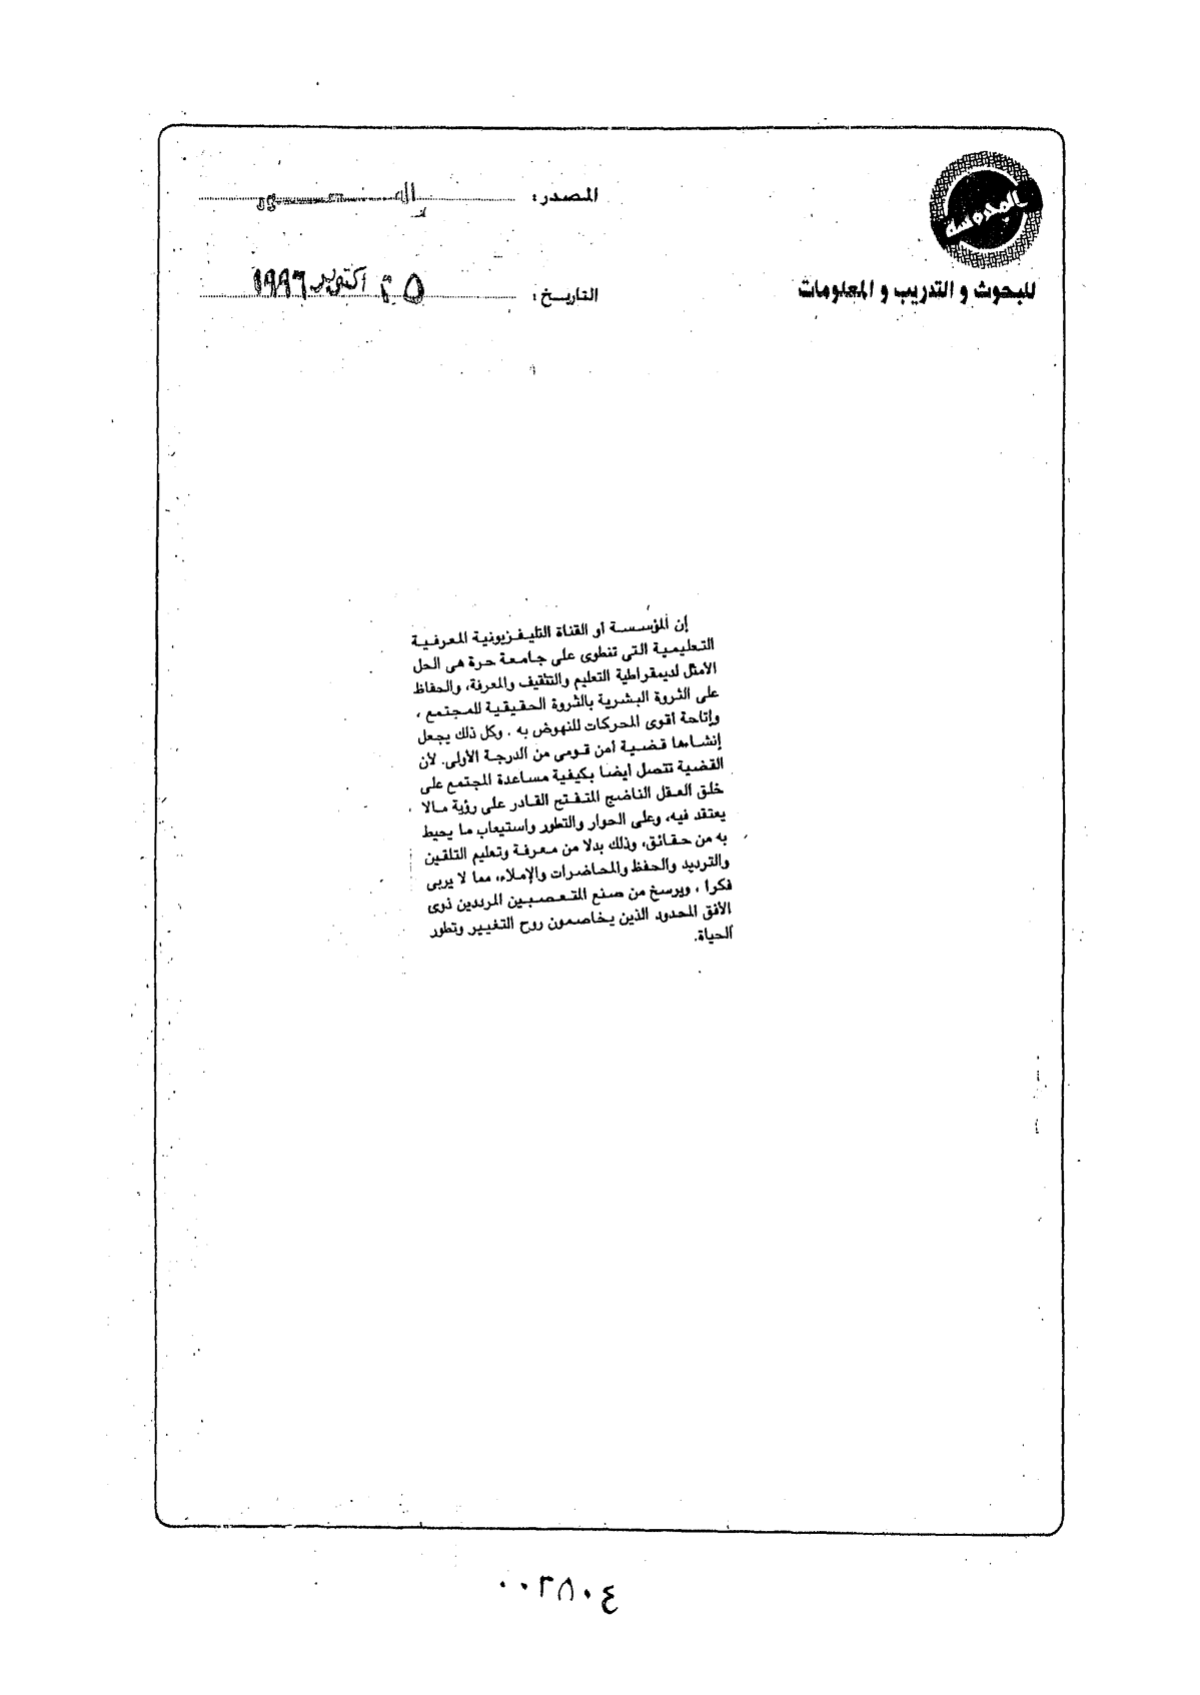 المدوسة
للبحوث و التدريب و المعلومات
المصدر:
التاريخ: ٢٥ اكتوبر ١٩٩٦
إن المؤسسة أو القناة التليفزيونية المعرفية
التعليمية التى تنطوى على جامعة حرة هى الحل
الأمثل لديمقراطية التعليم والتثقيف والمعرفة، والحفاظ
على الثروة البشرية بالثروة الحقيقية للمجتمع ،
وإتاحة أقوى المحركات للنهوض به . وكل ذلك يجعل
إنشاءها قضية أمن قومى من الدرجة الأولى. لأن
القضية تتصل أيضا بكيفية مساعدة المجتمع على
خلق العقل الناضج المتفتح القادر على رؤية مالا
يعتقد فيه، وعلى الحوار والتطور واستيعاب ما يحيط
به من حقائق، وذلك بدلا من معرفة وتعليم التلقين
والترديد والحفظ والمحاضرات والإملاء، مما لا يربى
فكرا ، ويرسخ من صنع المتعصبين المرددين ذوى
الأفق المحدود الذين يخاصمون روح التغيير وتطور
الحياة.